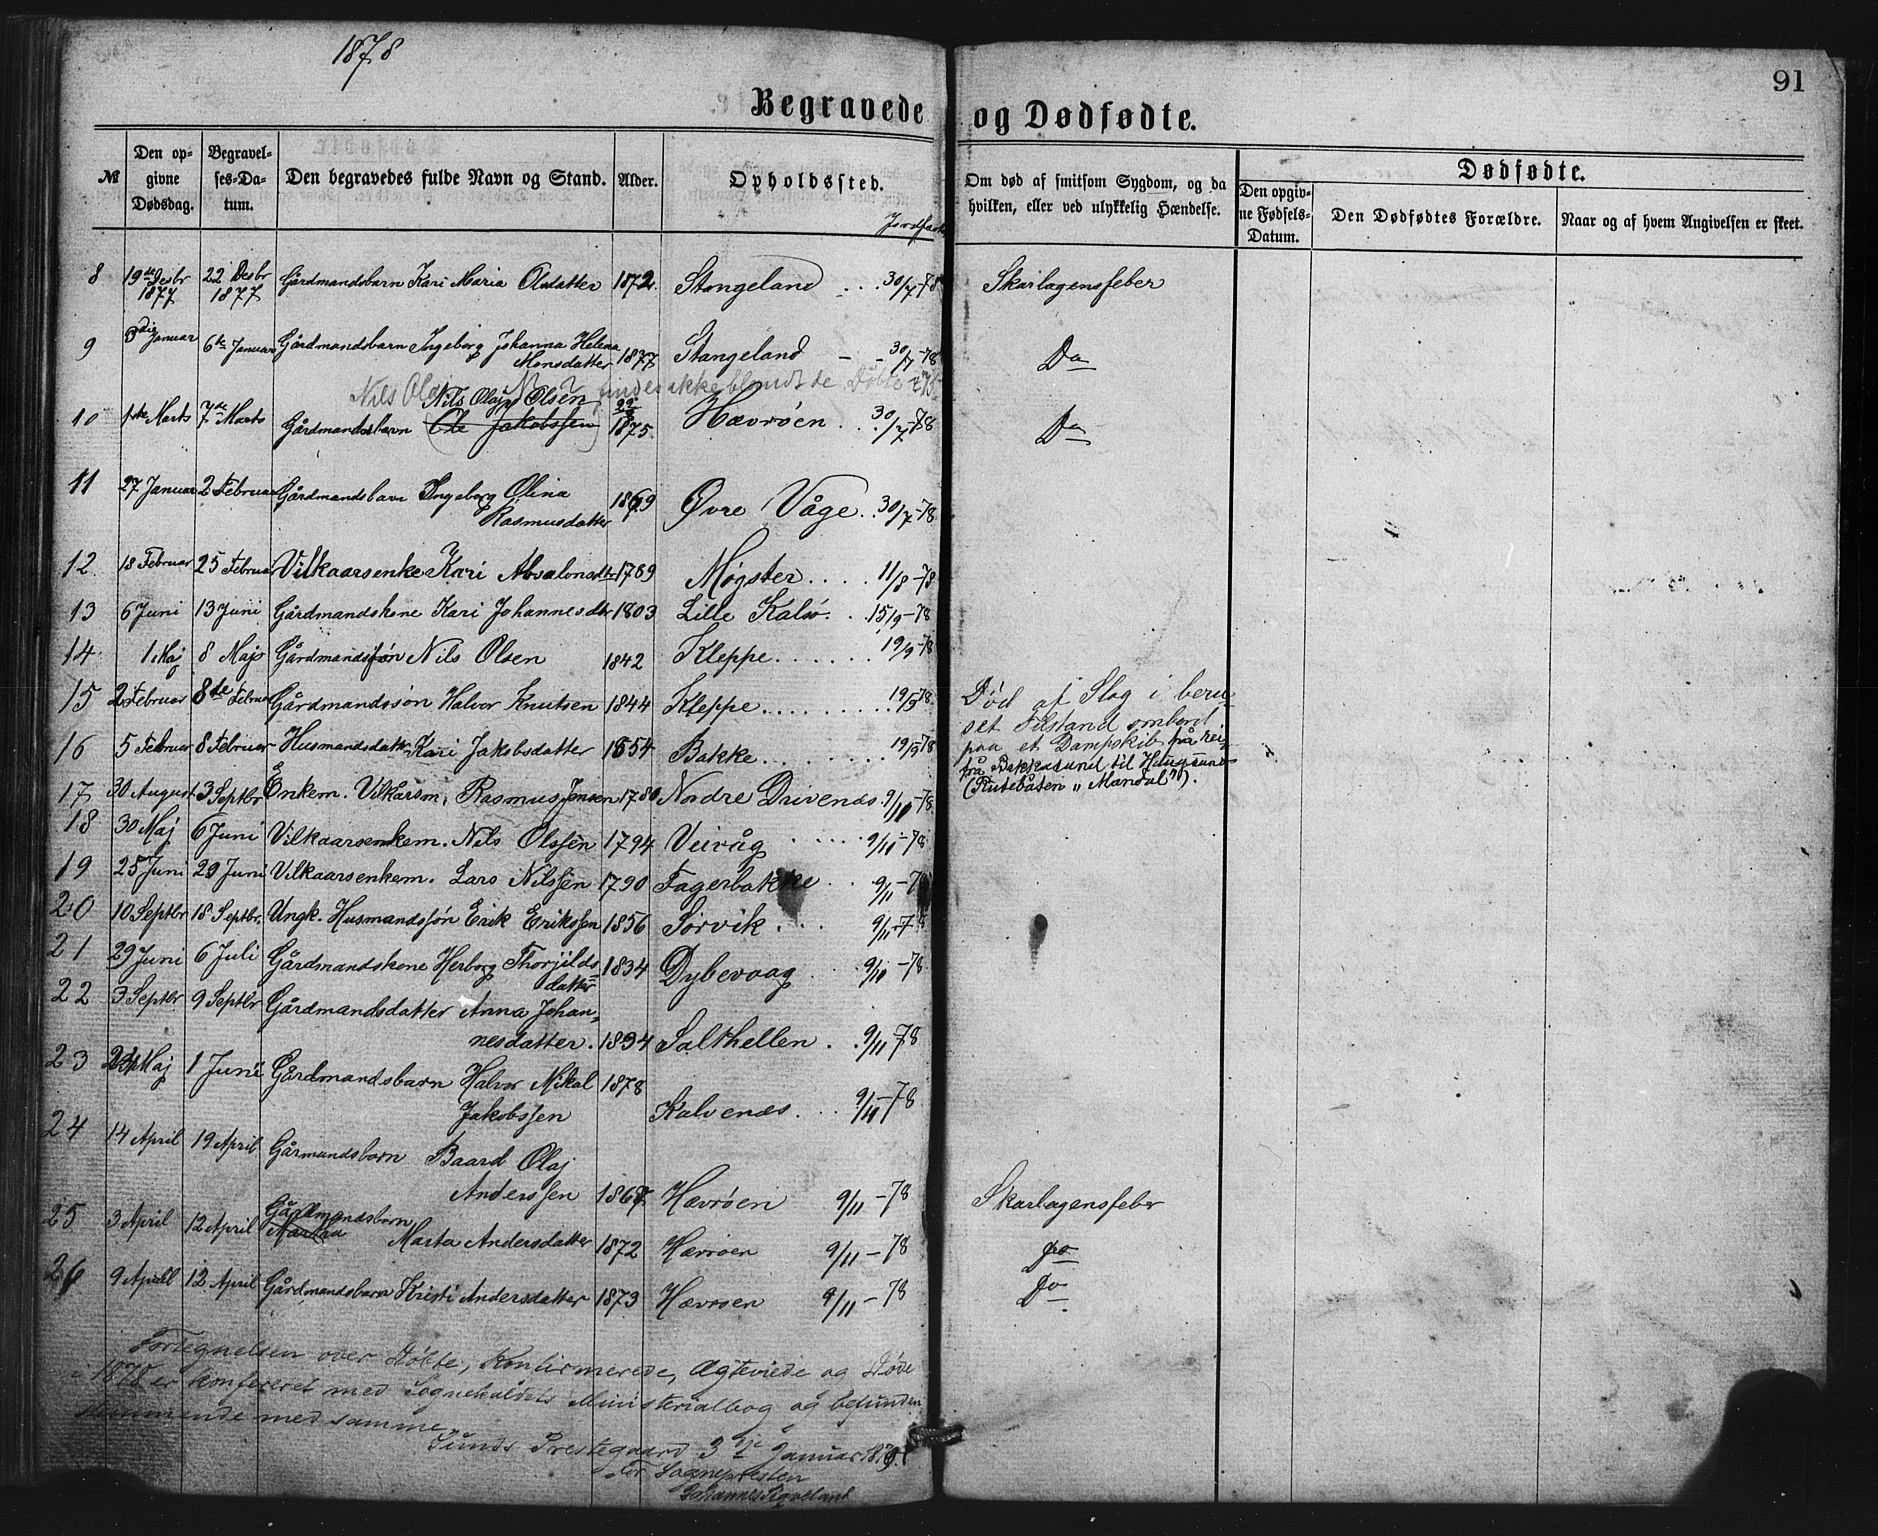 1878
91
Begravede og Dødfødte.
№
Den op-
givne
Dødsdag.
Begravel-
ses-Da-
tum.
Den begravedes fulde Navn og Stand.
Alder.
Opholdssted.
Om død af smitsom Sygdom, og da
hvilken, eller ved ulykkelig Hændelse.
Dødfødte.
Den opgiv-
ne Fødsels-
Datum.
Den Dødfødtes Forældre.
Naar og af hvem Angivelsen er skeet.
8 19de Desbr 1877 22 Desbr 1877 Gårdmandsbarn Kari Maria Olsdatter 1872 Stangeland 30/7-78 Skarlagensfeber
9 3die Januar 6te Januar Gårdmandsbarn Ingeborg Johanna Helena
Monsdatter 1877 Stangeland 30/7-78 Do
Nils Olaj findes ikke blandt de Døbte
Nils Olaj Olsen
10 1ste Marts 7de Marts Gårdmandsbarn Ole Jakobssen 1875 Hævrøen 30/7-78 Do
11 27 Januar 2 Februar Gårdmandsbarn Ingeborg Olina
Rasmusdatter 1869 Øvre Våge 30/7-78
12 18 Februar 25 Februar Vilkaarsenke Kari Absalonsdtr 1789 Møgster 11/8-78
13 6 Juni 13 Juni Gårdmandskone Kari Johannesdtr 1803 Lille Kalsø 15/9-78
14 1 Maj 8 Maj Gårdmandssøn Nils Olsen 1842 Kleppe 19/9-78
15 2 Februar 8de Februar Gårdmandssøn Halvor Knutsen 1844 Kleppe 19/9-78
Død af Slag i beru-
set Tilstand ombord
paa et Dampskib på rei-
fra Bekkasund til
(Rutebåten „Mandal").
16 5 Februar 8 Februar Husmandsdatter Kari Jakobsdatter 1854 Bakke 19/9-78
17 30 August 3 Septbr Enkem. Vilkårsm. Rasmus Jensen 1780 Nordre Drivenes 9/10-78
18 30 Maj 6 Juni Vilkaarsenkem. Nils Olssen 1794 Veivåg 9/11-78
19 25 Juni 29 Juni Vilkaarsenkem. Lars Nilssen 1790 Fagerbakke 9/11-78
20 10 Septbr 18 Septbr. Ungk. Husmandssøn Erik Erikssen 1856 Sørvik 9/11-78
21 29 Juni 6 Juli Gårdmandskone Herborg Thorjilds-
datter 1834 Dybevaag 9/10-78
22 3 Septbr 9 Septbr Gårdmandsdatter Anna Johan-
nesdatter 1834 Salthellen 9/11-78
23 24 Maj 1 Juni Gårdmandsbarn Halvor Mikal 1878
Jakobssen Kalvenæs 9/11-78
24 14 April 19 April Gårmandsbarn Baard Olaj
Anderssen 1867 Hævrøen 9/11-78 Skarlagensfeber
25 3 April 12 April Gårdmandsbarn
Martha Marta Andersdatter 1872 Hævrøen 9/11-78 Do
26 9 April 12 April Gårdmandsbarn Kristi Andersdatter 1873 Hævrøen 9/11-78 Do
Fortegnelsen over Døbte, Konfirmerede, Ægteviede og Døde
i 1878 er konfereret med Sognekaldets Ministerialbog og befunden
stemmende med samme.
Sunds Prestegaard 3dje Januar 1879.
For Sognepresten